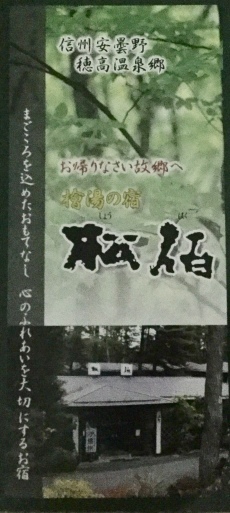 信州安曇野
穂高温泉郷
お帰りなさい故郷へ
檜湯の宿
松伯
まごころを込めたおもてなし 心のふれあいを大切にするお宿